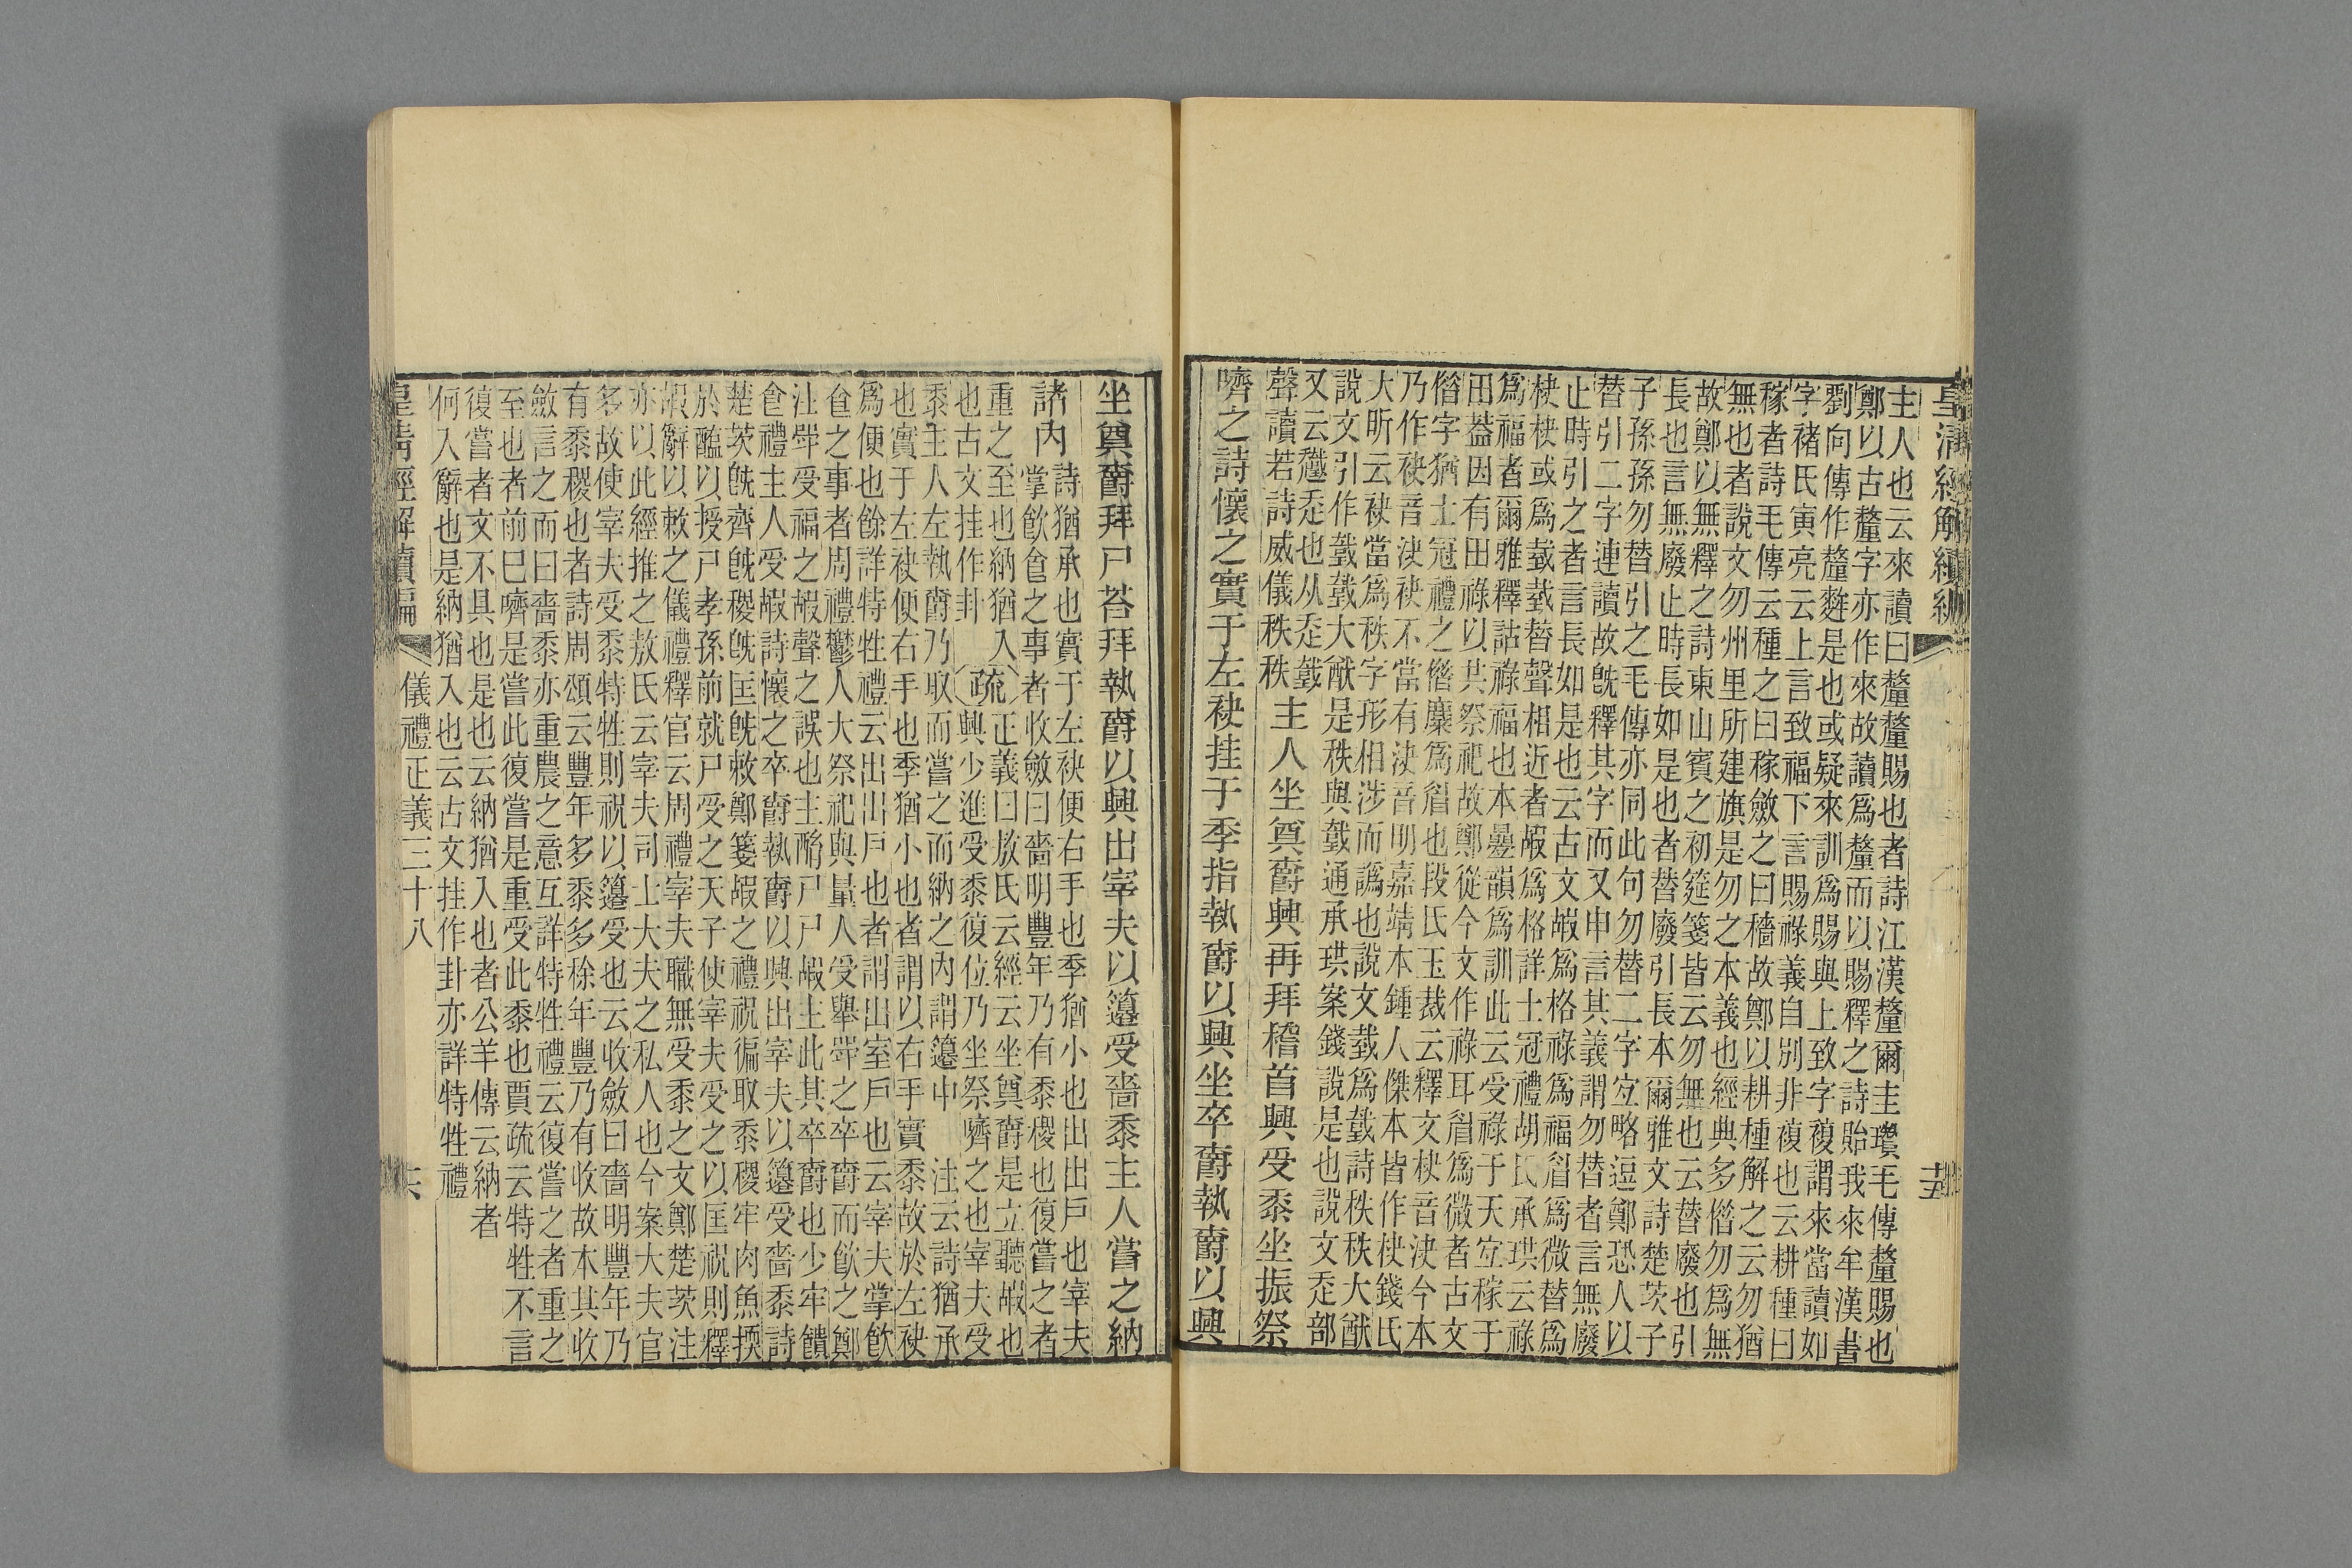 皇清經解續編
十五
主人也云來讀曰釐釐賜也者詩江漢釐爾圭瓚毛傳釐賜也
鄭以古釐字亦作來故讀爲釐而以賜釋之詩貽我來牟漢書
劉向傳作釐麰是也或疑來訓爲賜與上致字複謂來當讀如
字褚氏寅亮云上言致福下言賜祿義自別非複也云耕種曰
稼者詩毛傳云種之曰稼斂之曰穡故鄭以耕種解之云勿猶
無也者說文勿州里所建旗是勿之本義也經典多偺勿爲無
故鄭以無釋之詩東山賓之初筵箋皆云勿無也云替廢也引
長也言無廢止時長如是也者替廢引長本爾雅文詩楚茨子
子孫孫勿替引之毛傳亦同此句勿替二字宜略逗鄭恐人以
替引二字連讀故旣釋其字而又申言其義謂勿替者言無廢
止時引之者言長如是也云古文嘏爲格祿爲福眉爲微替爲
柣柣或爲臷臷替聲相近者嘏爲格詳士冠禮胡氏承珙云祿
爲福者爾雅釋詁祿福也本疊韻爲訓此云受祿于天宜稼于
田蓋因有田祿以共祭祀故鄭從今文作祿耳眉爲微者古文
偺字猶士冠禮之偺麋爲眉也段氏玉裁云釋文柣音決今本
乃作袂音決袂不當有決音明嘉靖本鍾人傑本皆作柣錢氏
大昕云袂當爲秩字形相涉而譌也說文臷爲臷詩秩秩大猷
說文引作臷臷大猷是秩與臷通承珙案錢說是也說文走部
又云走也从走
聲讀若詩威儀秩秩
主人坐奠爵興再拜稽首興受黍坐振祭
嚌之詩懷之實于左袂挂于季指執爵以興坐卒爵執爵以興
坐奠爵拜尸荅拜執爵以興出宰夫以籩受嗇黍主人嘗之納
諸內
詩猶承也實于左袂便右手也季猶小也出出戶也宰夫
掌飮食之事者收斂曰嗇明豐年乃有黍稷也復嘗之者
重之至也納猶入
也古文挂作卦
疏
正義曰敖氏云經云坐奠爵是立聽嘏也
興少進受黍復位乃坐祭嚌之也宰夫受
黍主人左執爵乃取而嘗之而納之內謂籩中　注云詩猶承
也實于左袂便右手也季猶小也者謂以右手實黍故於左袂
爲便也餘詳特牲禮云出出戶也者謂出室戶也云宰夫掌飮
食之事者周禮鬱人大祭祀與量人受舉斝之卒爵而飮之鄭
注斝受福之嘏聲之誤也主酳尸尸嘏主此其卒爵也少牢饋
食禮主人受嘏詩懷之卒爵執爵以興出宰夫以籩受嗇黍詩
楚茨旣齊旣稷旣匡旣敕鄭箋嘏之禮祝徧取黍稷牢肉魚擩
於醢以授尸孝孫前就尸受之天子使宰夫受之以匡祝則釋
嘏辭以敕之儀禮釋官云周禮宰夫職無受黍之文鄭楚茨注
亦以此經推之敖氏云宰夫司士大夫之私人也今案大夫官
多故使宰夫受黍特牲則祝以籩受也云收斂曰嗇明豐年乃
有黍稷也者詩周頌云豐年多黍多稌年豐乃有收故本其收
斂言之而曰嗇黍亦重農之意互詳特牲禮云復嘗之者重之
至也者前已嚌是嘗此復嘗是重受此黍也賈疏云特牲不言
復嘗者文不具也是也云納猶入也者公羊傳云納者
何入辭也是納猶入也云古文挂作卦亦詳特牲禮
皇清經解續編
儀禮正義三十八
十六